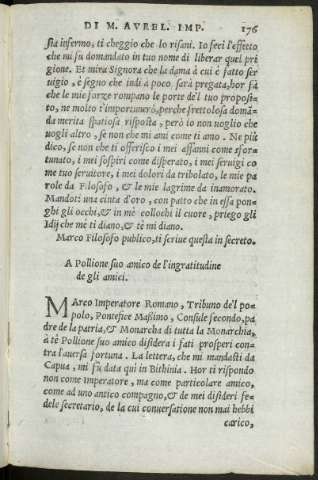 DI M. AVREL. IMP. 176
sia infermo, ti cheggio che lo risani. Io feci l'effetto
che mi fu domandato in tuo nome di liberar quel pri
gione. Et mira Signora che la dama à cui è fatto ser
uigio, è segno che indi à poco, sarà pregata, hor fà
che le mie forze rompano le porte de'l tuo proposi-
to, ne molto t'importunirò, perche frettolosa domã-
da merita spatiosa risposta, però io non uoglio che
uogli altro, se non che mi ami come ti amo. Ne più
dico, se non che ti offerisco i mei affanni come sfor-
tunato, i mei sospiri come disperato, i mei seruigi co
me tuo seruitore, i mei dolori da tribolato, le mie pa
role da Filosofo, & le mie lagrime da inamorato.
Mandoti una cinta d'oro, con patto che in essa pon-
ghi gli occhi, & in mè collochi il cuore, priego gli
Idij che mè ti diano, & tè mi diano.
Marco Filosofo publico, ti scriue questa in secreto.
A Pollione suo amico de l'ingratitudine
de gli amici.
MArco Imperatore Romano, Tribuno de'l po-
polo, Pontefice Maßimo, Consule secondo, pa
dre de la patria, & Monarcha di tutta la Monarchia,
à tè Pollione suo amico disidera i fati prosperi con-
tra l'auersa fortuna. La lettera, che mi mandasti da
Capua, mi fù data qui in Bithinia. Hor ti rispondo
non come imperatore, ma come particolare amico,
come ad uno antico compagno, & de mei disideri fe-
dele secretario, de la cui conuersatione non mai hebbi
carico,